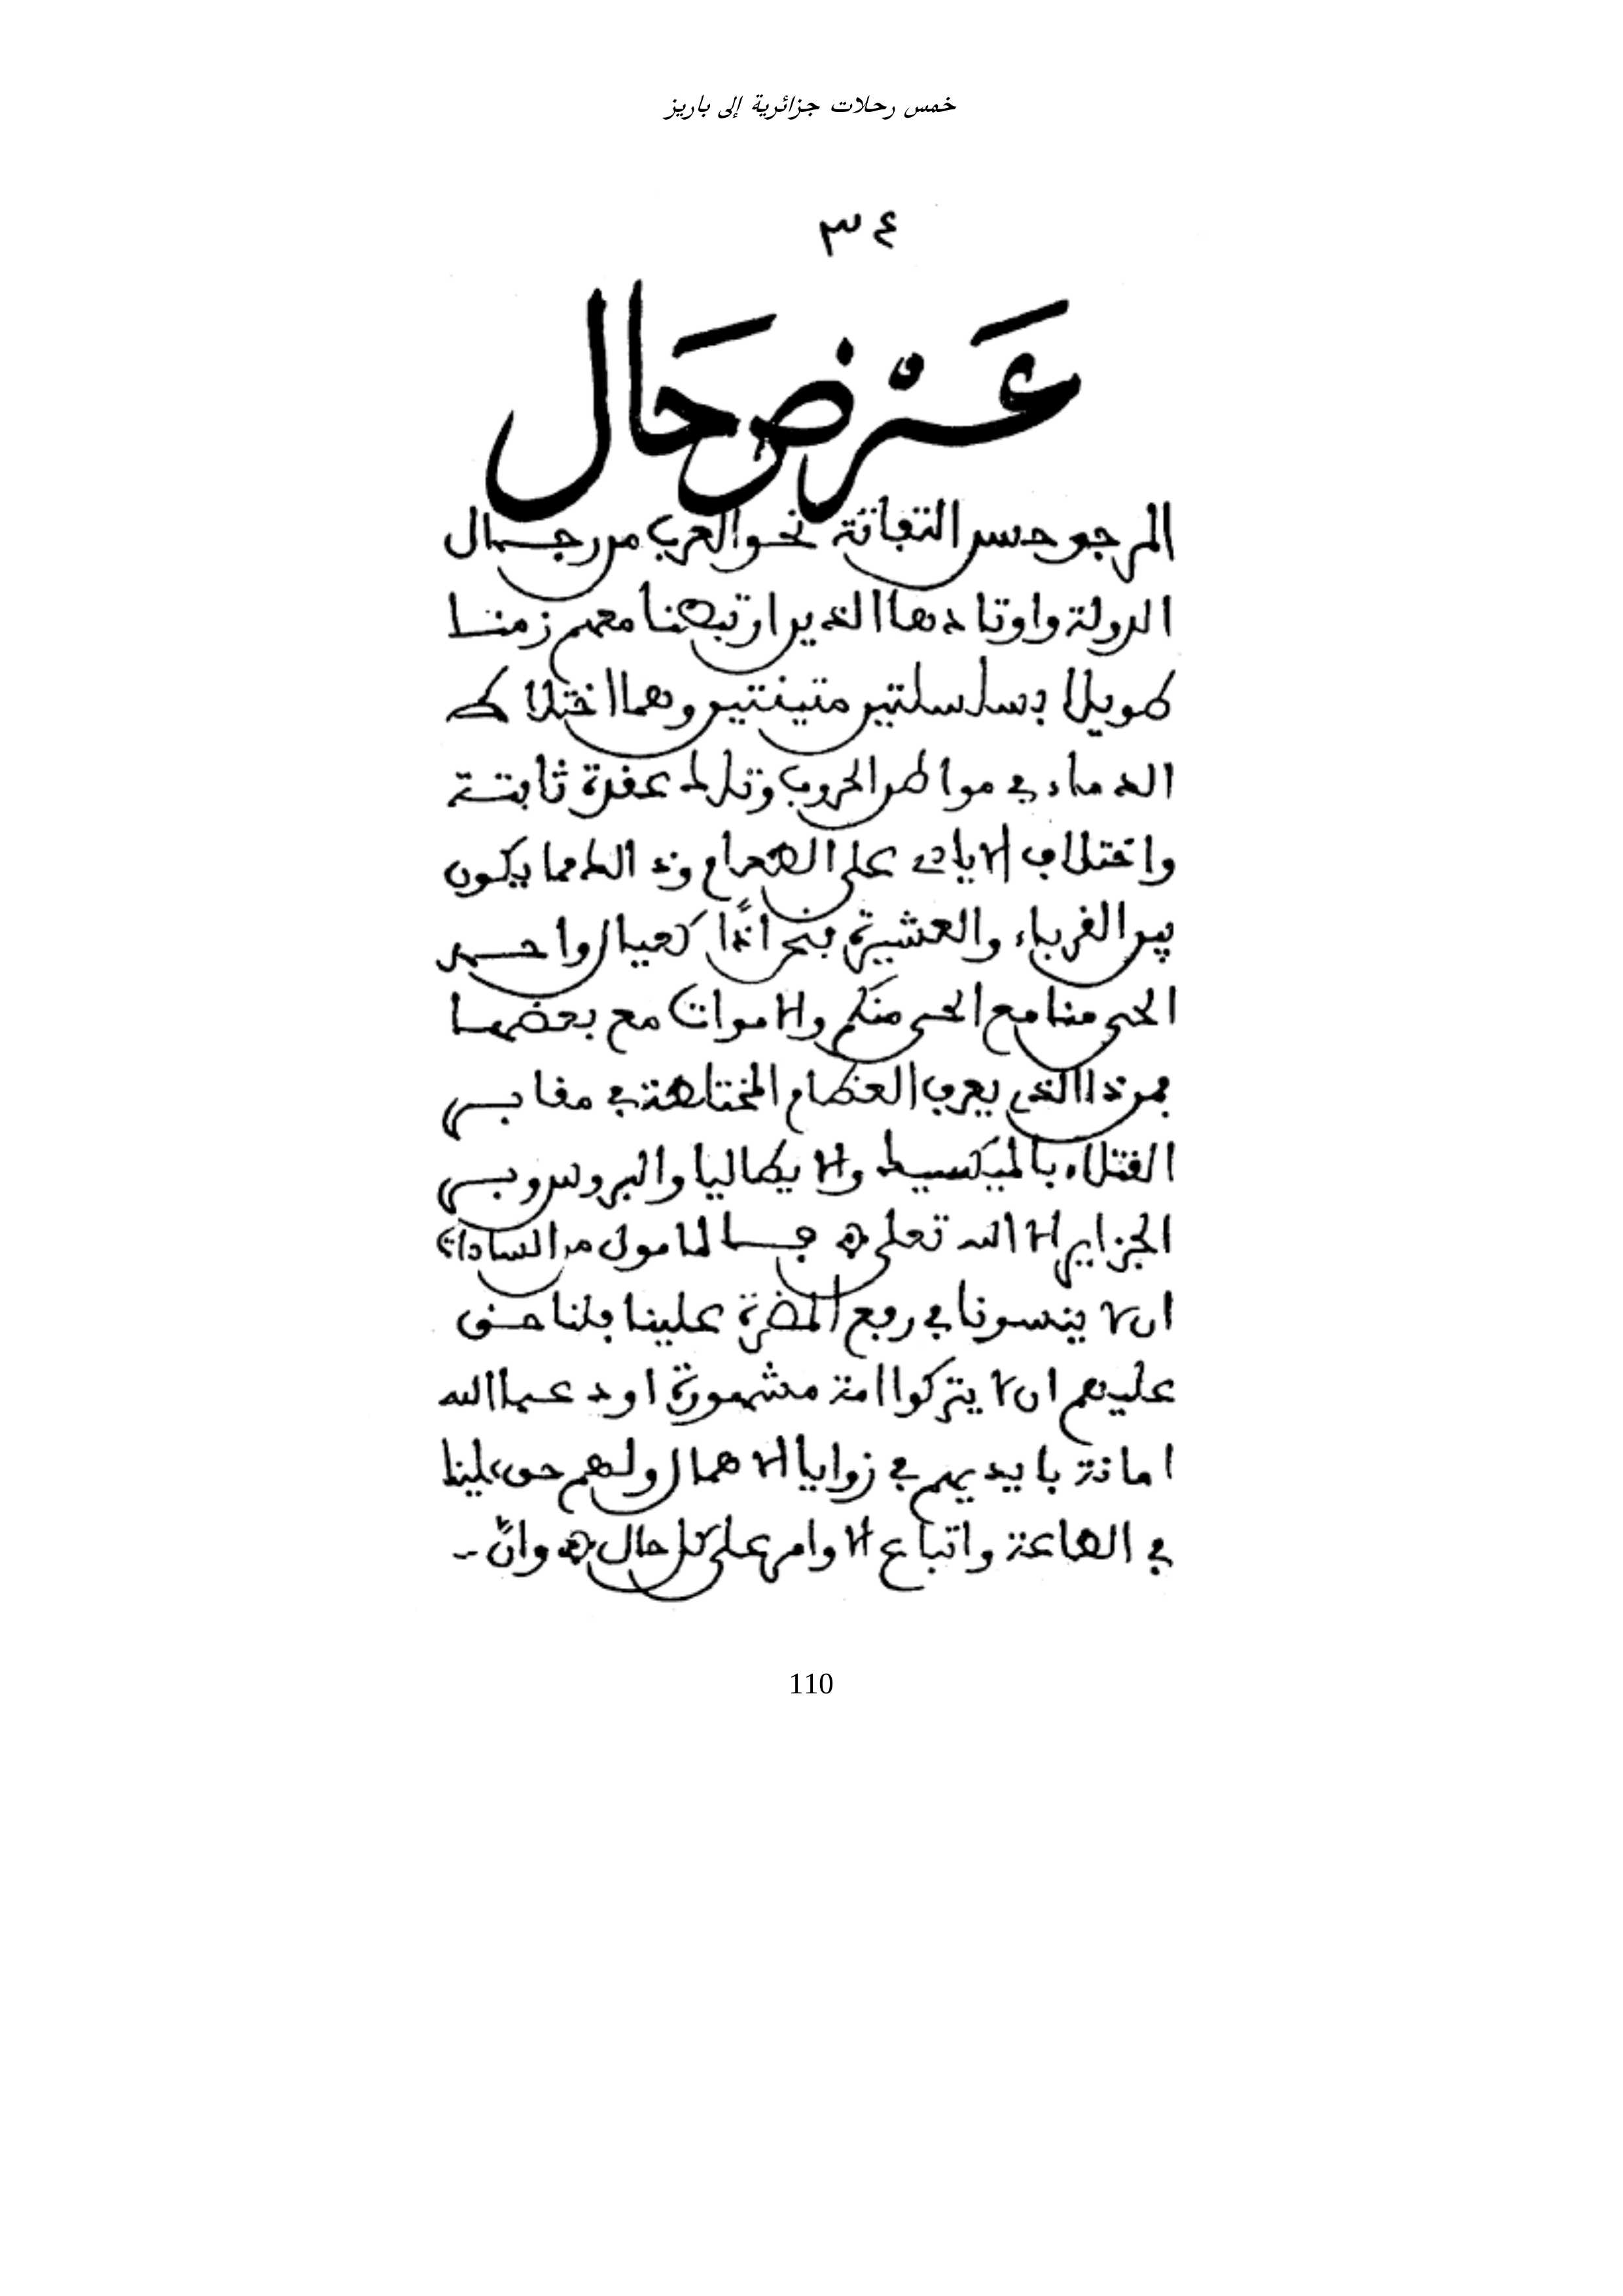 خمس رحلات جزائرية إلى باريز
٣٤
عَرْض حَال
المرجو حسن التفاتة نحو العرب من رجال
الدولة واوتادها الذين ارتبطنا معهم زمنا
طويلا بسلسلتين متينتين وهما اختلاط
الدماء في مواطن الحروب وتلك عقدة ثابتة
واختلاف الايادي على الطعام وذالك مما يكون
بين الغرباء والعشيرة فنحن اذًا كعيال واحد
الحي منا مع الحي منكم والاموات مع بعضها
فمن ذا الذي يعرف العظام المختلطة في مقابر
القتلاء بالميكسيك والايطاليا والبروس وبر
الجزاير الا الله تعلى فالمامول من السادات
ان لا ينسونا في رفع المضرة علينا فلنا حق
عليهم ان لا يتركوا امة مشهورة اودعها الله
امانة بايديهم في زوايا الاهمال ولهم حق علينا
في الطاعة واتباع الاوامر على كل حال وانّ ـ
110